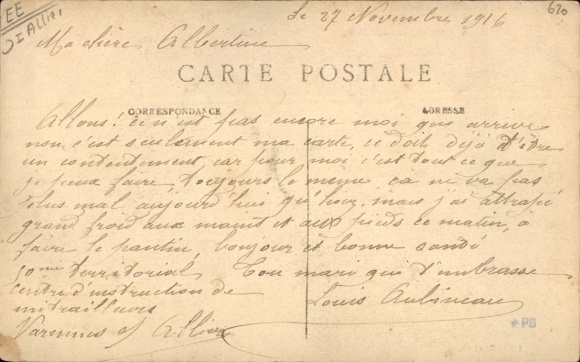 EE
Allier
620
Le 27 Novembre 1916
Ma chère Albertine
CARTE POSTALE
CORRESPONDANCE
ADRESSE
Allons! ce n'est pas encore moi que arrive
non c'est seulement ma carte, ce doit déjà t'être
un contentement, car pour moi c'est tout ce que
je peux faire, toujours le même ca ne va pas
plus mal aujourd'hui qu'hier, mais j'ai attrapé
grand froid aux mains et aux pieds ce matin, à
faire le pantin, bonjour et bonne santé
territorial Ton mari qui t'embrasse
centre d'instruction de Louis Aubineau
mitrailleurs
Varennes s/ Allier
PB